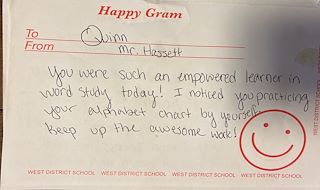 Happy Gram
To Quinn
From Mr. Hassett
You were such an empowered learner in
word study today! I noticed you practicing
your alphabet chart by yourself.
Keep up the awesome work!
WEST DISTRICT SCHOOL WEST DISTRICT SCHOOL WEST DISTRICT SCHOOL WEST DISTRICT SCHOOL
WEST DISTRICT SCHOOL